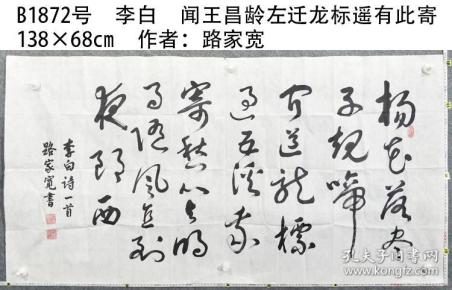 B1872号 李白 闻王昌龄左迁龙标遥有此寄
138×68cm 作者：路家宽
杨花落尽
子规啼
闻道龙標
过五溪我
寄愁心与明
月随风直到
夜郎西
李白诗一首
路家寛书
孔夫子旧书网
www.kongfz.com